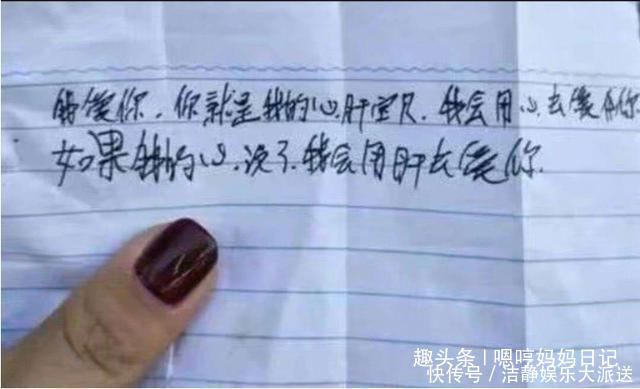 爱你．你就是我的心肝宝贝．我会用心去爱你
如果我的心．没了．我会用肝去爱你．
趣头条 | 嗯哼妈妈日记
快传号 / 洁静娱乐大派送